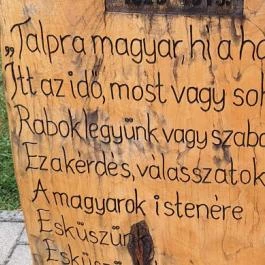 „Talpra magyar, hí a ha
Itt az idő, most vagy soh
Rabok legyünk vagy szaba
Ez a kérdés, válasszatok
A magyarok istenére
Esküszünk
Esküszü